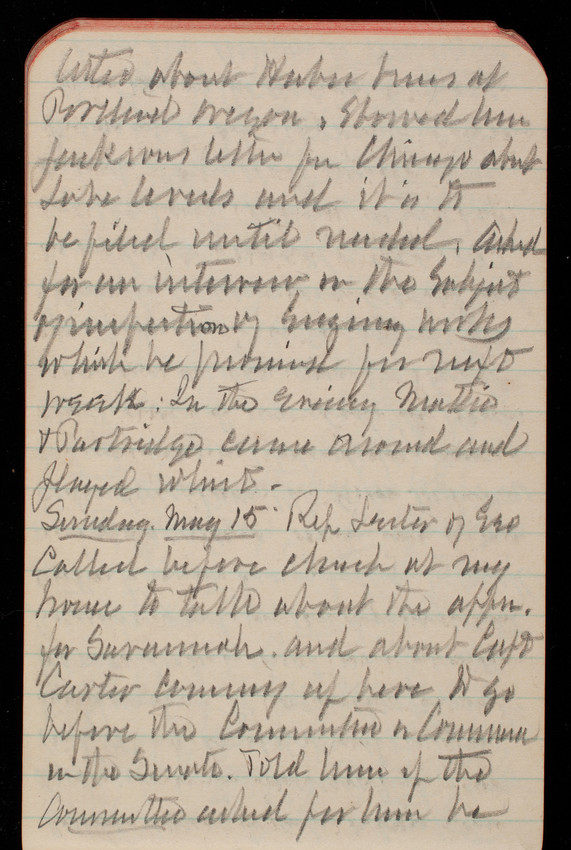 letter about Harbor lines at
Portland Oregon. Showed him
Jacksons letter fr Chicago about
Lake levels and it is to
be filed until needed. Asked
for an interview on the Subject
of inspection of Engineer works
which he promised for next
week. In the Evening Mattie
& Partridge came around and
played whist.
Sunday. May 15 Rep Lester of Geo
Called before church at my
house to talk about the appn.
for Savannah. and about Capt
Carter coming up here to go
before the Committee on Commerce
in the Senate. Told him if the
Committee asked for him he